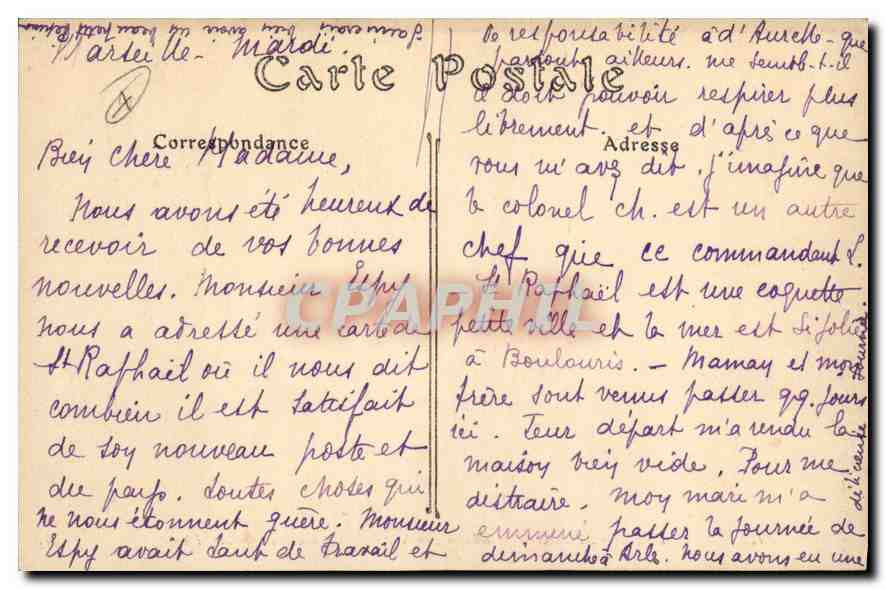 Marseille. Mardi.
Carte Postale
Correspondance
Bien chère Madame,
Nous avons été heureux de
recevoir de vos bonnes
nouvelles. Monsieur Espy
nous a adressé une carte de
St Raphaël où il nous dit
combien il est satisfait
de son nouveau poste et
du pays. Toutes choses qui
ne nous étonnent guère. Monsieur
Espy avait tant de travail et
de responsabilité à d'Aurelle - que
partout ailleurs. me semb-t-il
il doit pouvoir respirer plus
librement. et d'après ce que
Adresse
vous m'avez dit. j'imagine que
le colonel Ch. est un autre
chef que ce commandant L.
St Raphaël est une coquette
petite ville et la mer est si jolie
à Boulouris. - Maman et mon
frère sont venus passer qq. jours
ici. Leur départ m'a rendu la
maison bien vide. Pour me
distraire. mon mari m'a
emmené passer la journée de
dimanche à Arles. Nous avons eu une
délicieuse journée.
J'aimerais bien avoir un beau petit
CPAPHIL